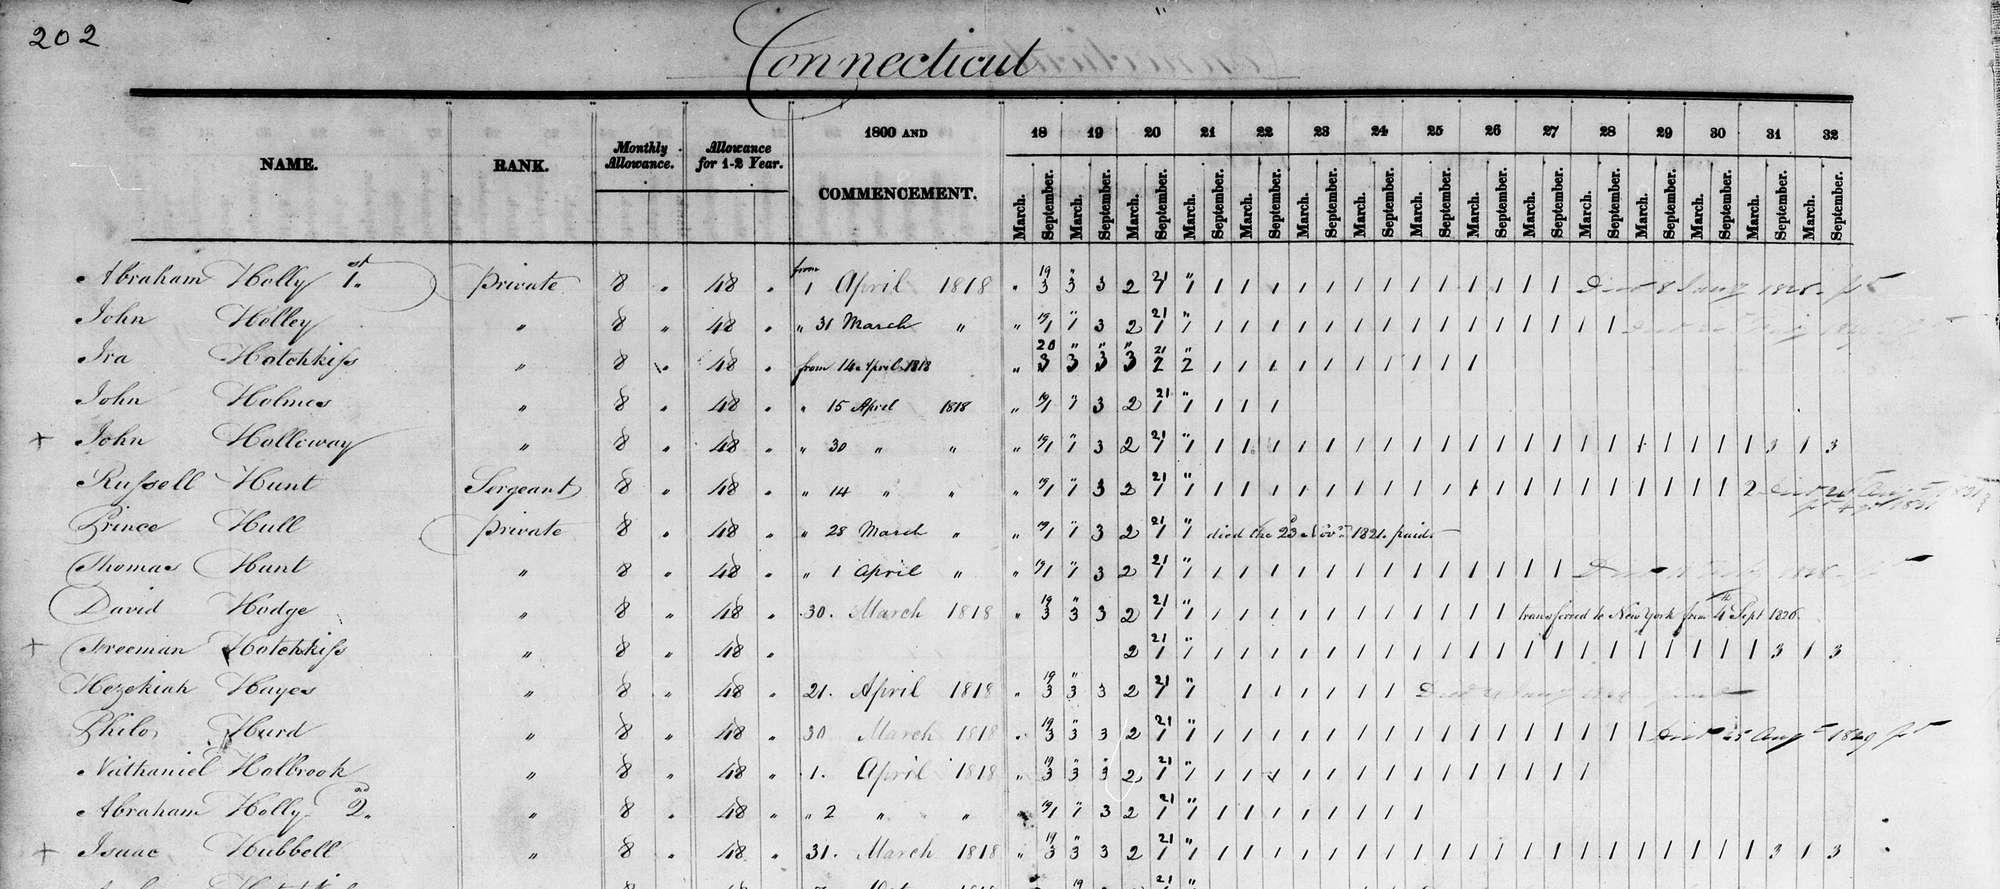 202
Connecticut
NAME. RANK. Monthly Allowance. Allowance for 1-2 Year. 1800 AND COMMENCEMENT. 18 19 20 21 22 23 24 25 26 27 28 29 30 31 32
March. September. March. September. March. September. March. September. March. September. March. September. March. September. March. September. March. September. March. September. March. September. March. September. March. September. March. September. March. September.
Abraham Holly 1st private 8 " 48 " from 1 April 1818 " 19 3 " 3 3 2 21 1 " 1 1 1 1 1 1 1 1 1 1 1 1 1 1 Died 8 1828
John Holley " 8 " 48 " " 31 March " " 19/1 " 1 3 2 21 1 " 1 1 1 1 1 1 1 1 1 1 1 1 1 1 1 1
Ira Hotchkiss " 8 " 48 " from 14 April 1818 " 20 3 " 3 " 3 " 3 21 2 " 2 1 1 1 1 1 1 1 1 1 1
John Holmes " 8 " 48 " " 15 April 1818 " 19/1 " 1 3 2 21 1 " 1 1 1 1
+ John Holloway " 8 " 48 " " 30 " " " 19/1 " 1 3 2 21 1 " 1 1 1 1 1 1 1 1 1 1 1 1 1 1 1 1 1 1 1 1 1 3 1 3
Russell Hunt Sergeant 8 " 48 " " 14 " " " 19/1 " 1 3 2 21 1 " 1 1 1 1 1 1 1 1 1 1 1 1 1 1 1 1 1 1 1 1 2
Prince Hull private 8 " 48 " " 28 March " " 19/1 " 1 3 2 21 1 " 1 died the 23d Novr 1821. paid.
Thomas Hunt " 8 " 48 " " 1 April " " 19/1 " 1 3 2 21 1 " 1 1 1 1 1 1 1 1 1 1 1 1 1 1
David Hodge " 8 " 48 " 30. March 1818 " 19 3 " 3 3 2 21 1 " 1 1 1 1 1 1 1 1 1 1 1 1 transferred to New York from 4th Sept 1826.
+ Freeman Hotchkiss " 8 " 48 " 2 21 1 " 1 1 1 1 1 1 1 1 1 1 1 1 1 1 1 1 1 1 1 1 1 3 1 3
Hezekiah Hayes " 8 " 48 " 21. April 1818 " 19 3 " 3 3 2 21 1 " 1 1 1 1 1 1 1
Philo Hurd " 8 " 48 " 30 March 1818 " 19 3 " 3 3 2 21 1 " 1 1 1 1 1 1 1 1 1 1 1 1 1 1 1 1 1 Died 25 Augt 1829
Nathaniel Holbrook " 8 " 48 " 1. April 1818 " 19 3 " 3 " 3 2 21 1 " 1 1 1 1 1 1 1 1 1 1 1 1 1 1 1
Abraham Holly 2d " 8 " 48 " " 2 " " 19/1 " 1 3 2 21 1 " 1 1 1 1 1 1 1 1 1
+ Isaac Hubbell " 8 " 48 " 31. March 1818 " 19 3 " 3 3 2 21 1 " 1 1 1 1 1 1 1 1 1 1 1 1 1 1 1 1 1 1 1 1 1 3 1 3